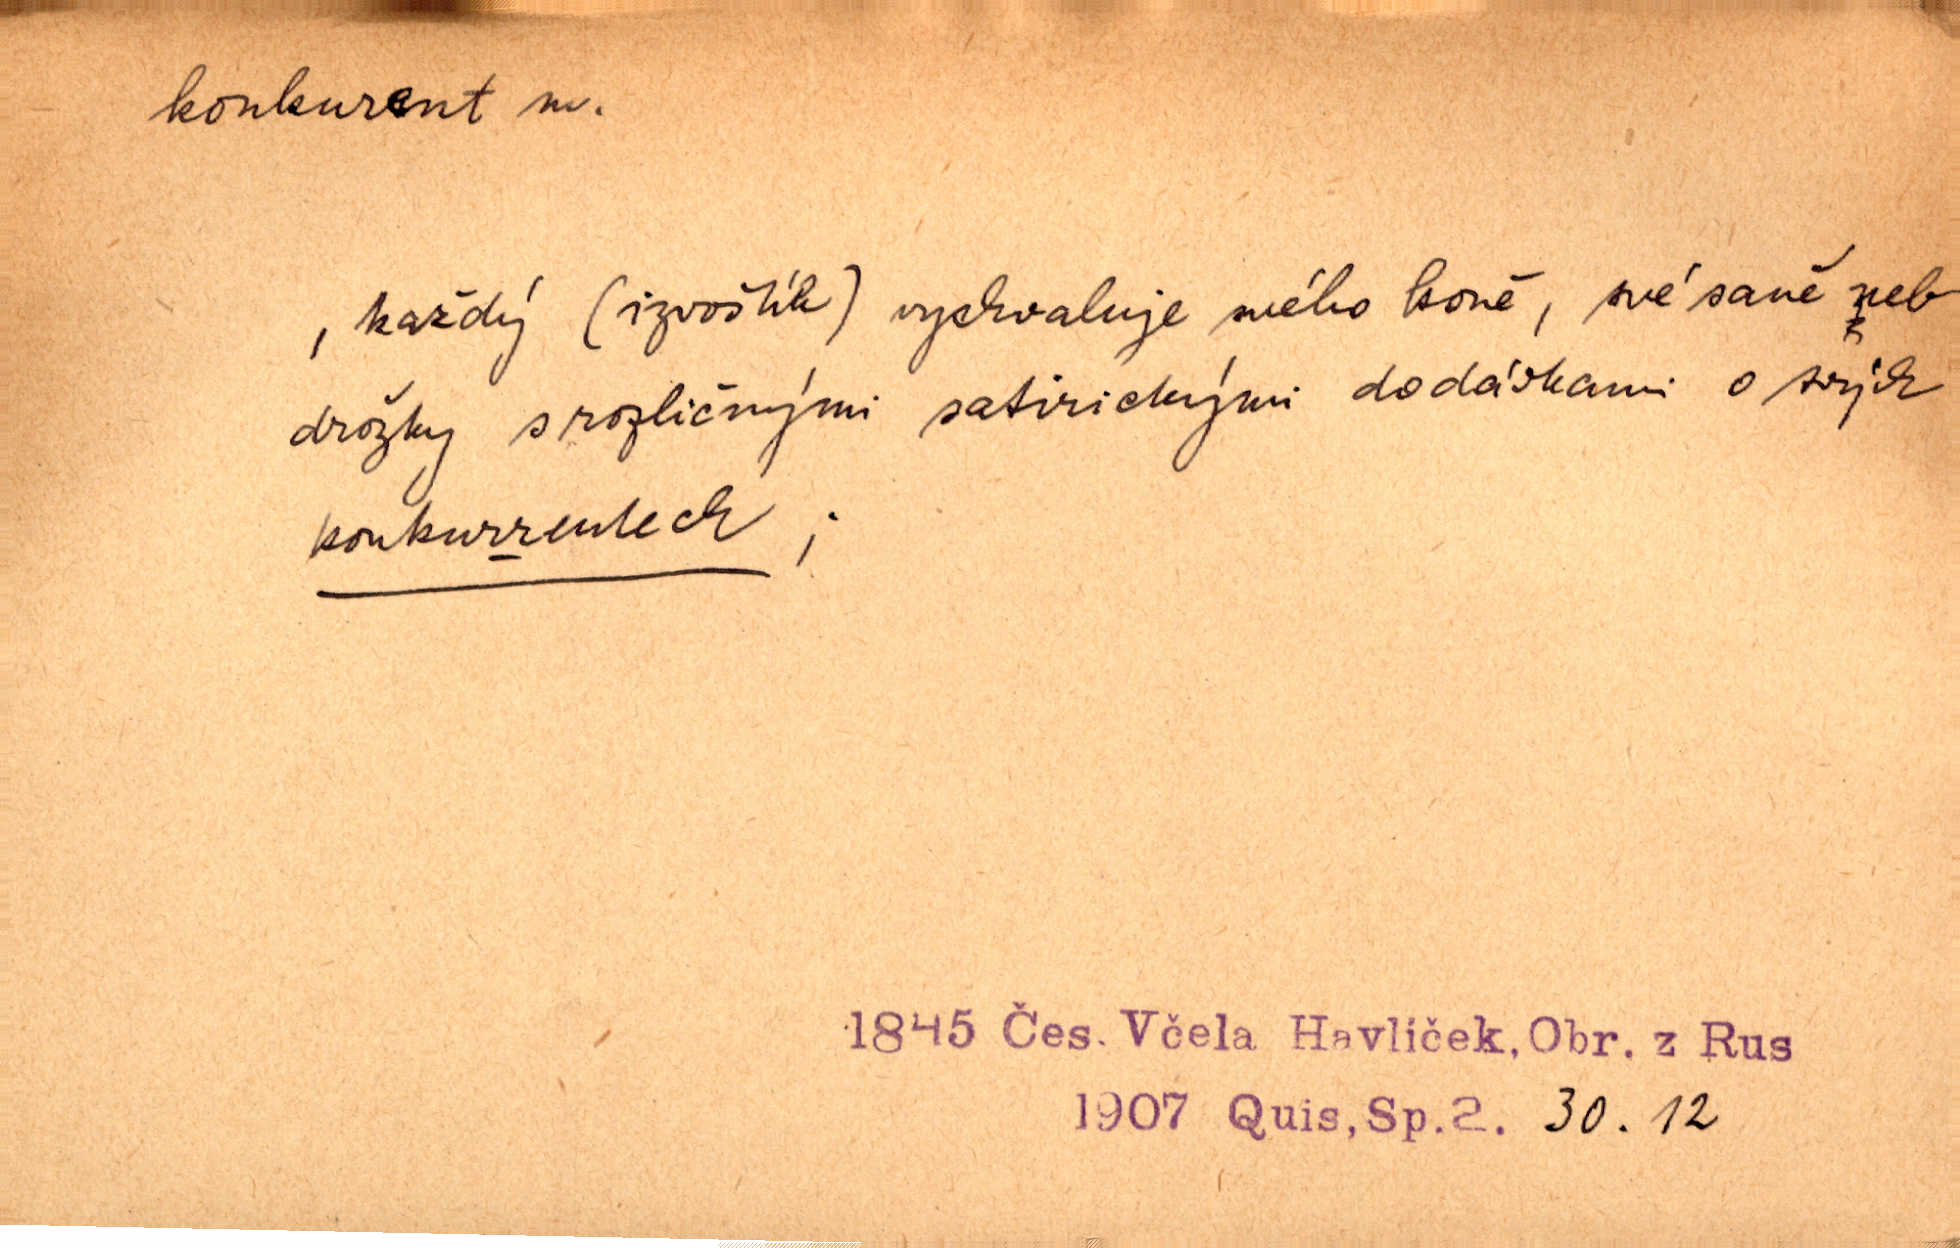 konkurent m.
, každý (izvoštík) vychvaluje svého koně, své saně neb
drožky s rozličnými satirickými dodávkami o svých
konkurrentech ;
1845 Čes. Včela Havlíček, Obr. z Rus
1907 Quis, Sp. 2. 30. 12